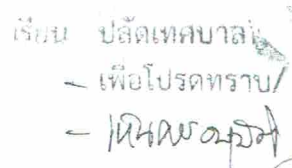 เรียน ปลัดเทศบาล
- เพื่อโปรดทราบ/
- เห็นควรอนุมัติ